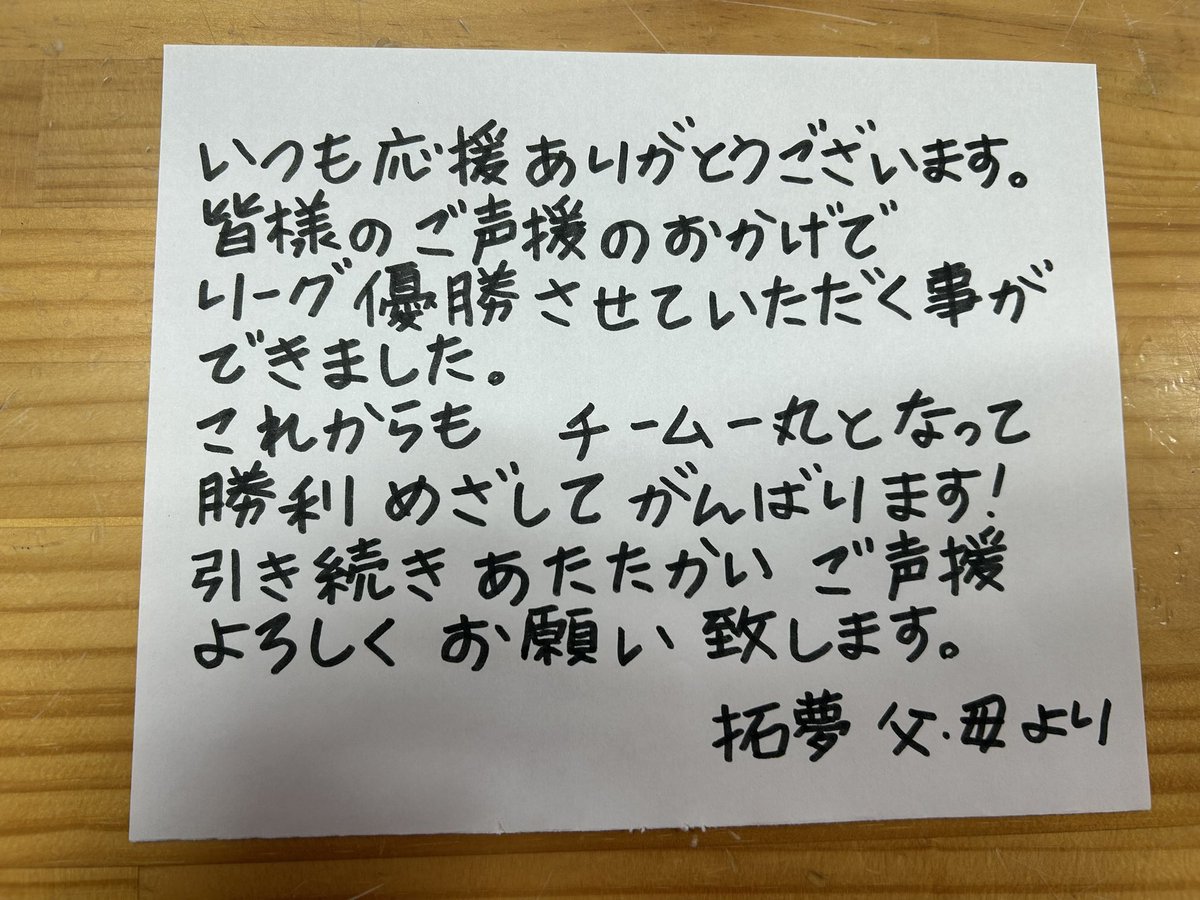 いつも応援ありがとうございます。
皆様のご声援のおかげで
リーグ優勝させていただく事が
できました。
これからも　チーム一丸となって
勝利めざしてがんばります!
引き続きあたたかいご声援
よろしくお願い致します。
拓夢 父・母より